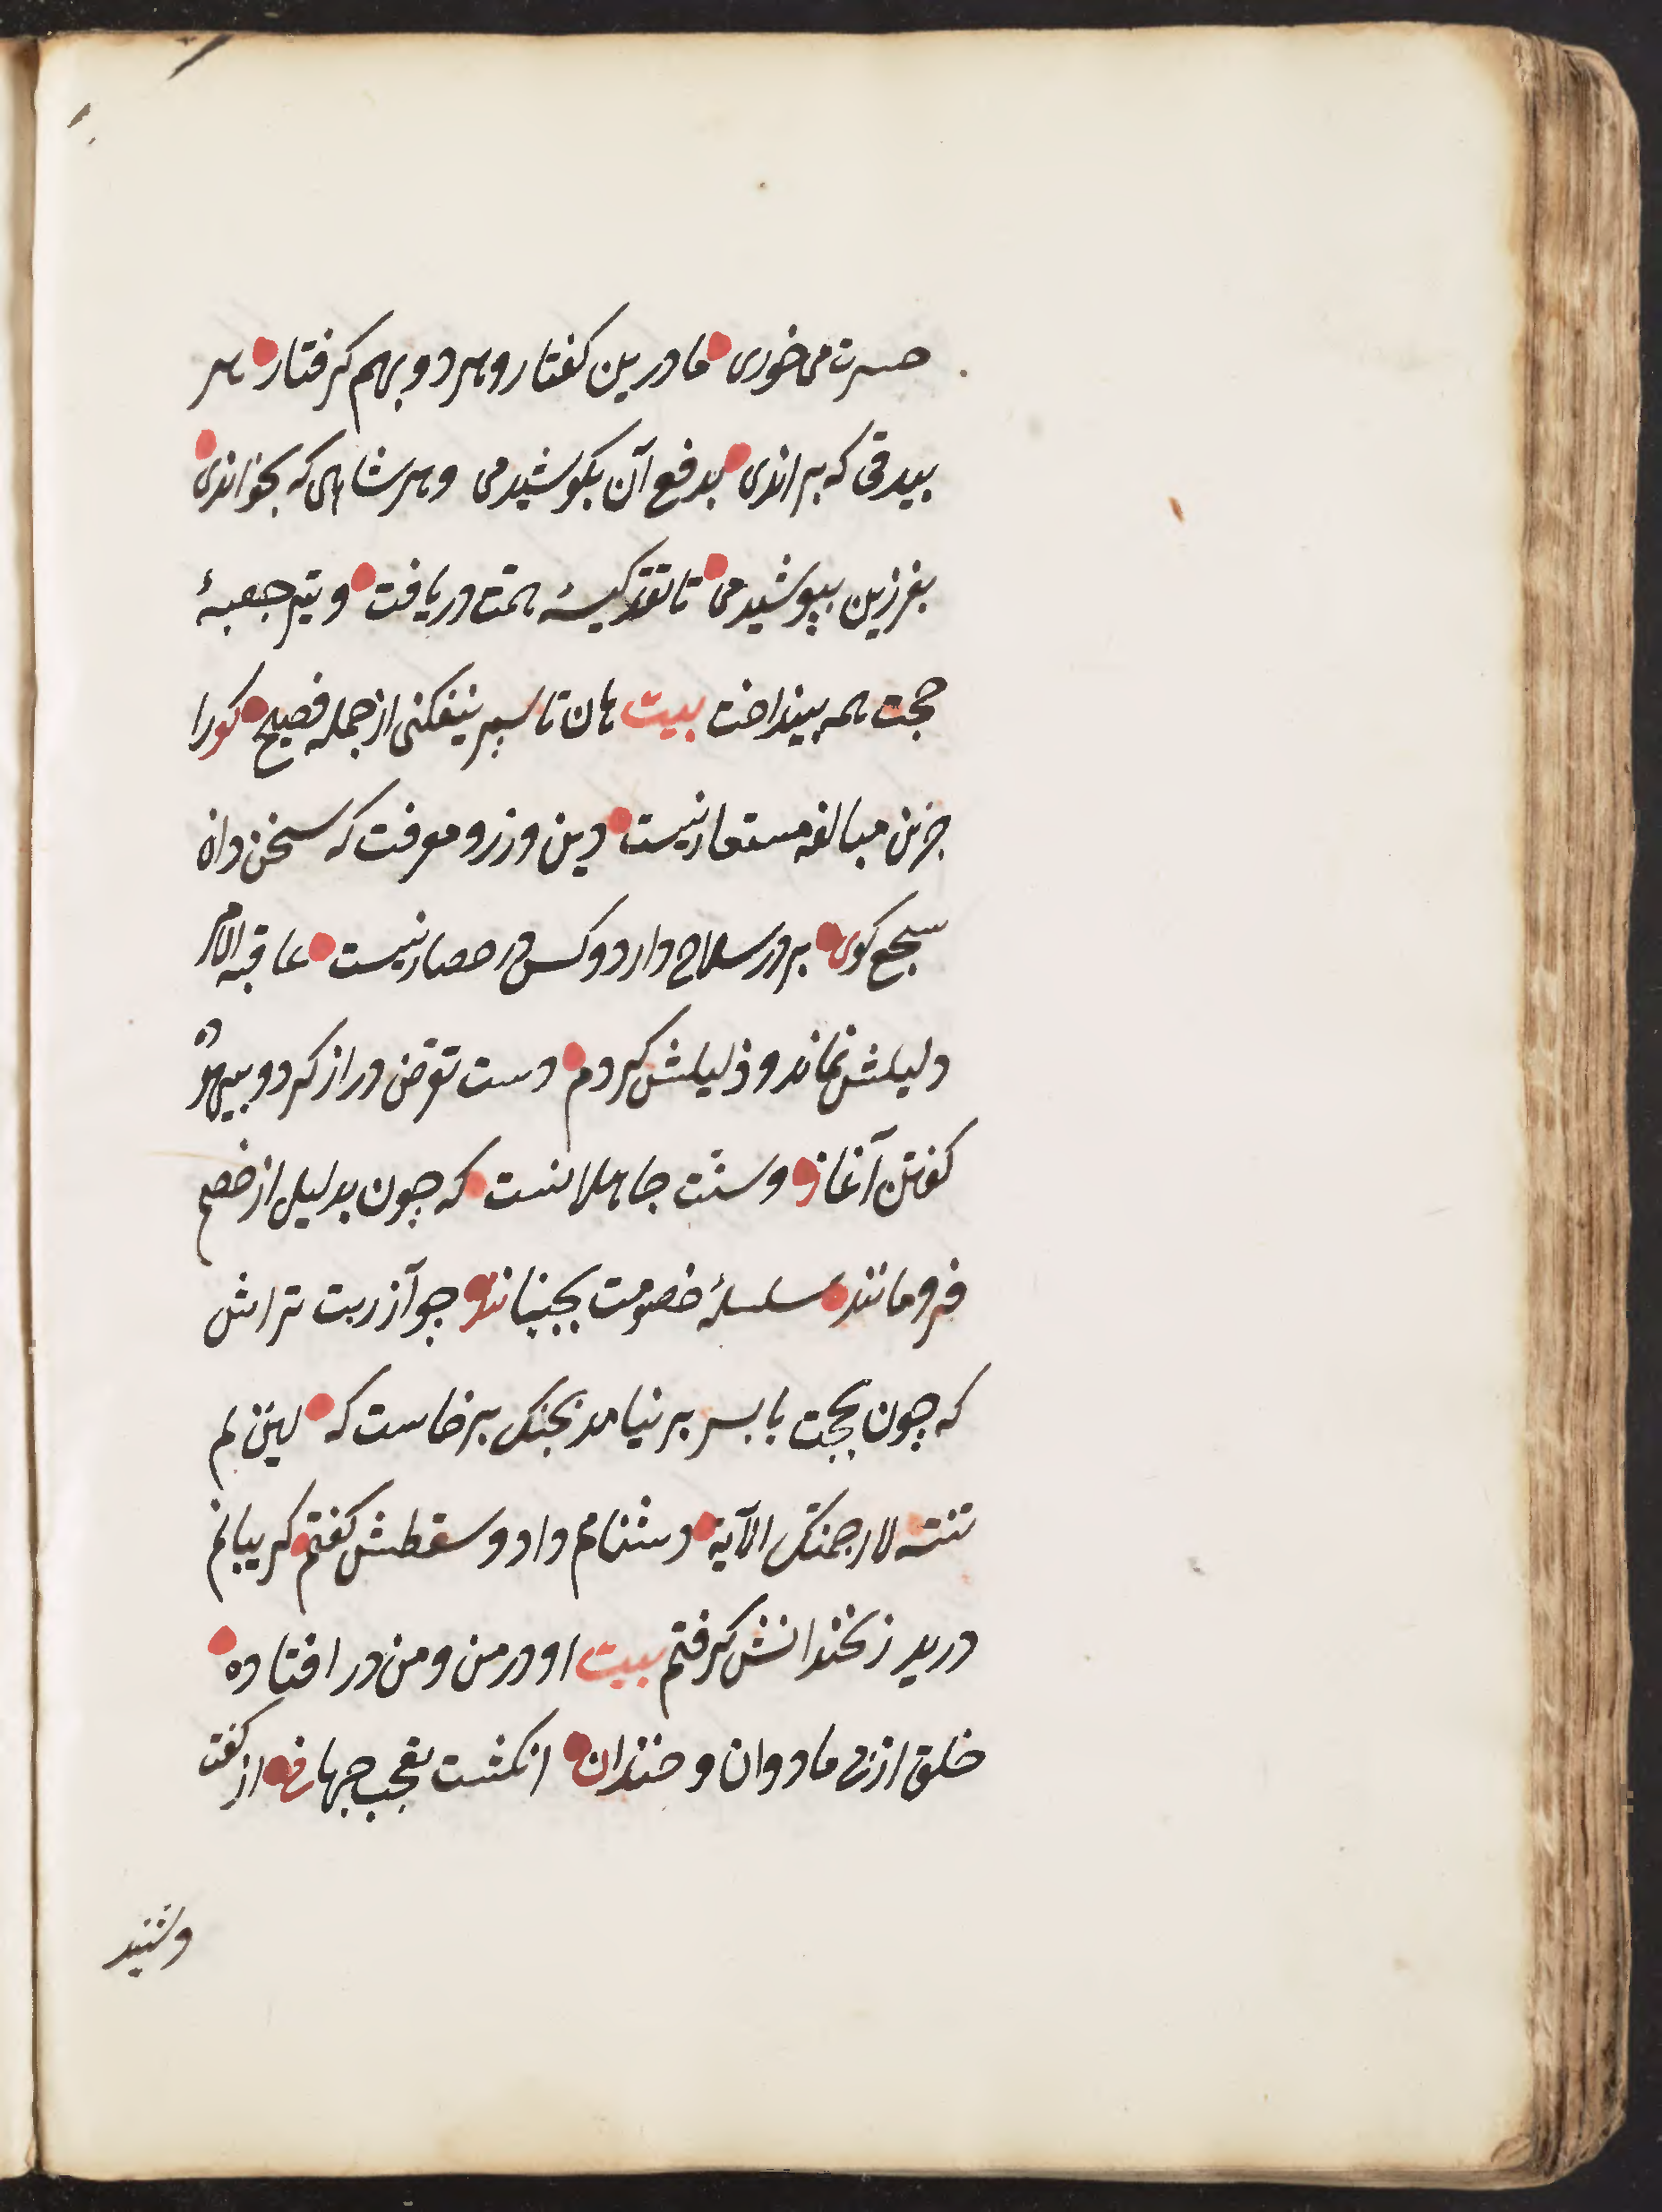 حسرت می خوری ما درین کفتار و هر دو بهم کرفتار هر
بیدقی که براندی بدفع آن بکوشیدمی و هر شاهی که بخواندی
بفرزین بپوشیدمی تا نقد کیسهٔ همت دریافت و تیر جعبهٔ
حجت همه بینداخت بیت هان تا سپر نیفکنی از جمله فصیح کورا
جزین مبالغه مستعار نیست دین ورز و معرفت که سخن دان
سجع کوی بر در سلاح دارد و کس در حصار نیست عاقبه الامر
دلیلش نماند و ذلیلش کردم دست تعرض دراز کرد و بیهده
کفتن آغاز و سنّت جاهلانست که چون بدلیل از خصم
فرو مانند سلسلهٔ خصومت بجنبانند چو آزر بت تراش
که چون بحجت با پسر بر نیامد بجنک برخاست که لین لم
تنته لارجمنک الآیة دشنام داد و سقطش کفتم کریبانم
درید زنخدانش کرفتم بیت او در من و من در افتاده
خلق از پی ما دوان و خندان انکشت تعجب جهانی از کفت
و شنید